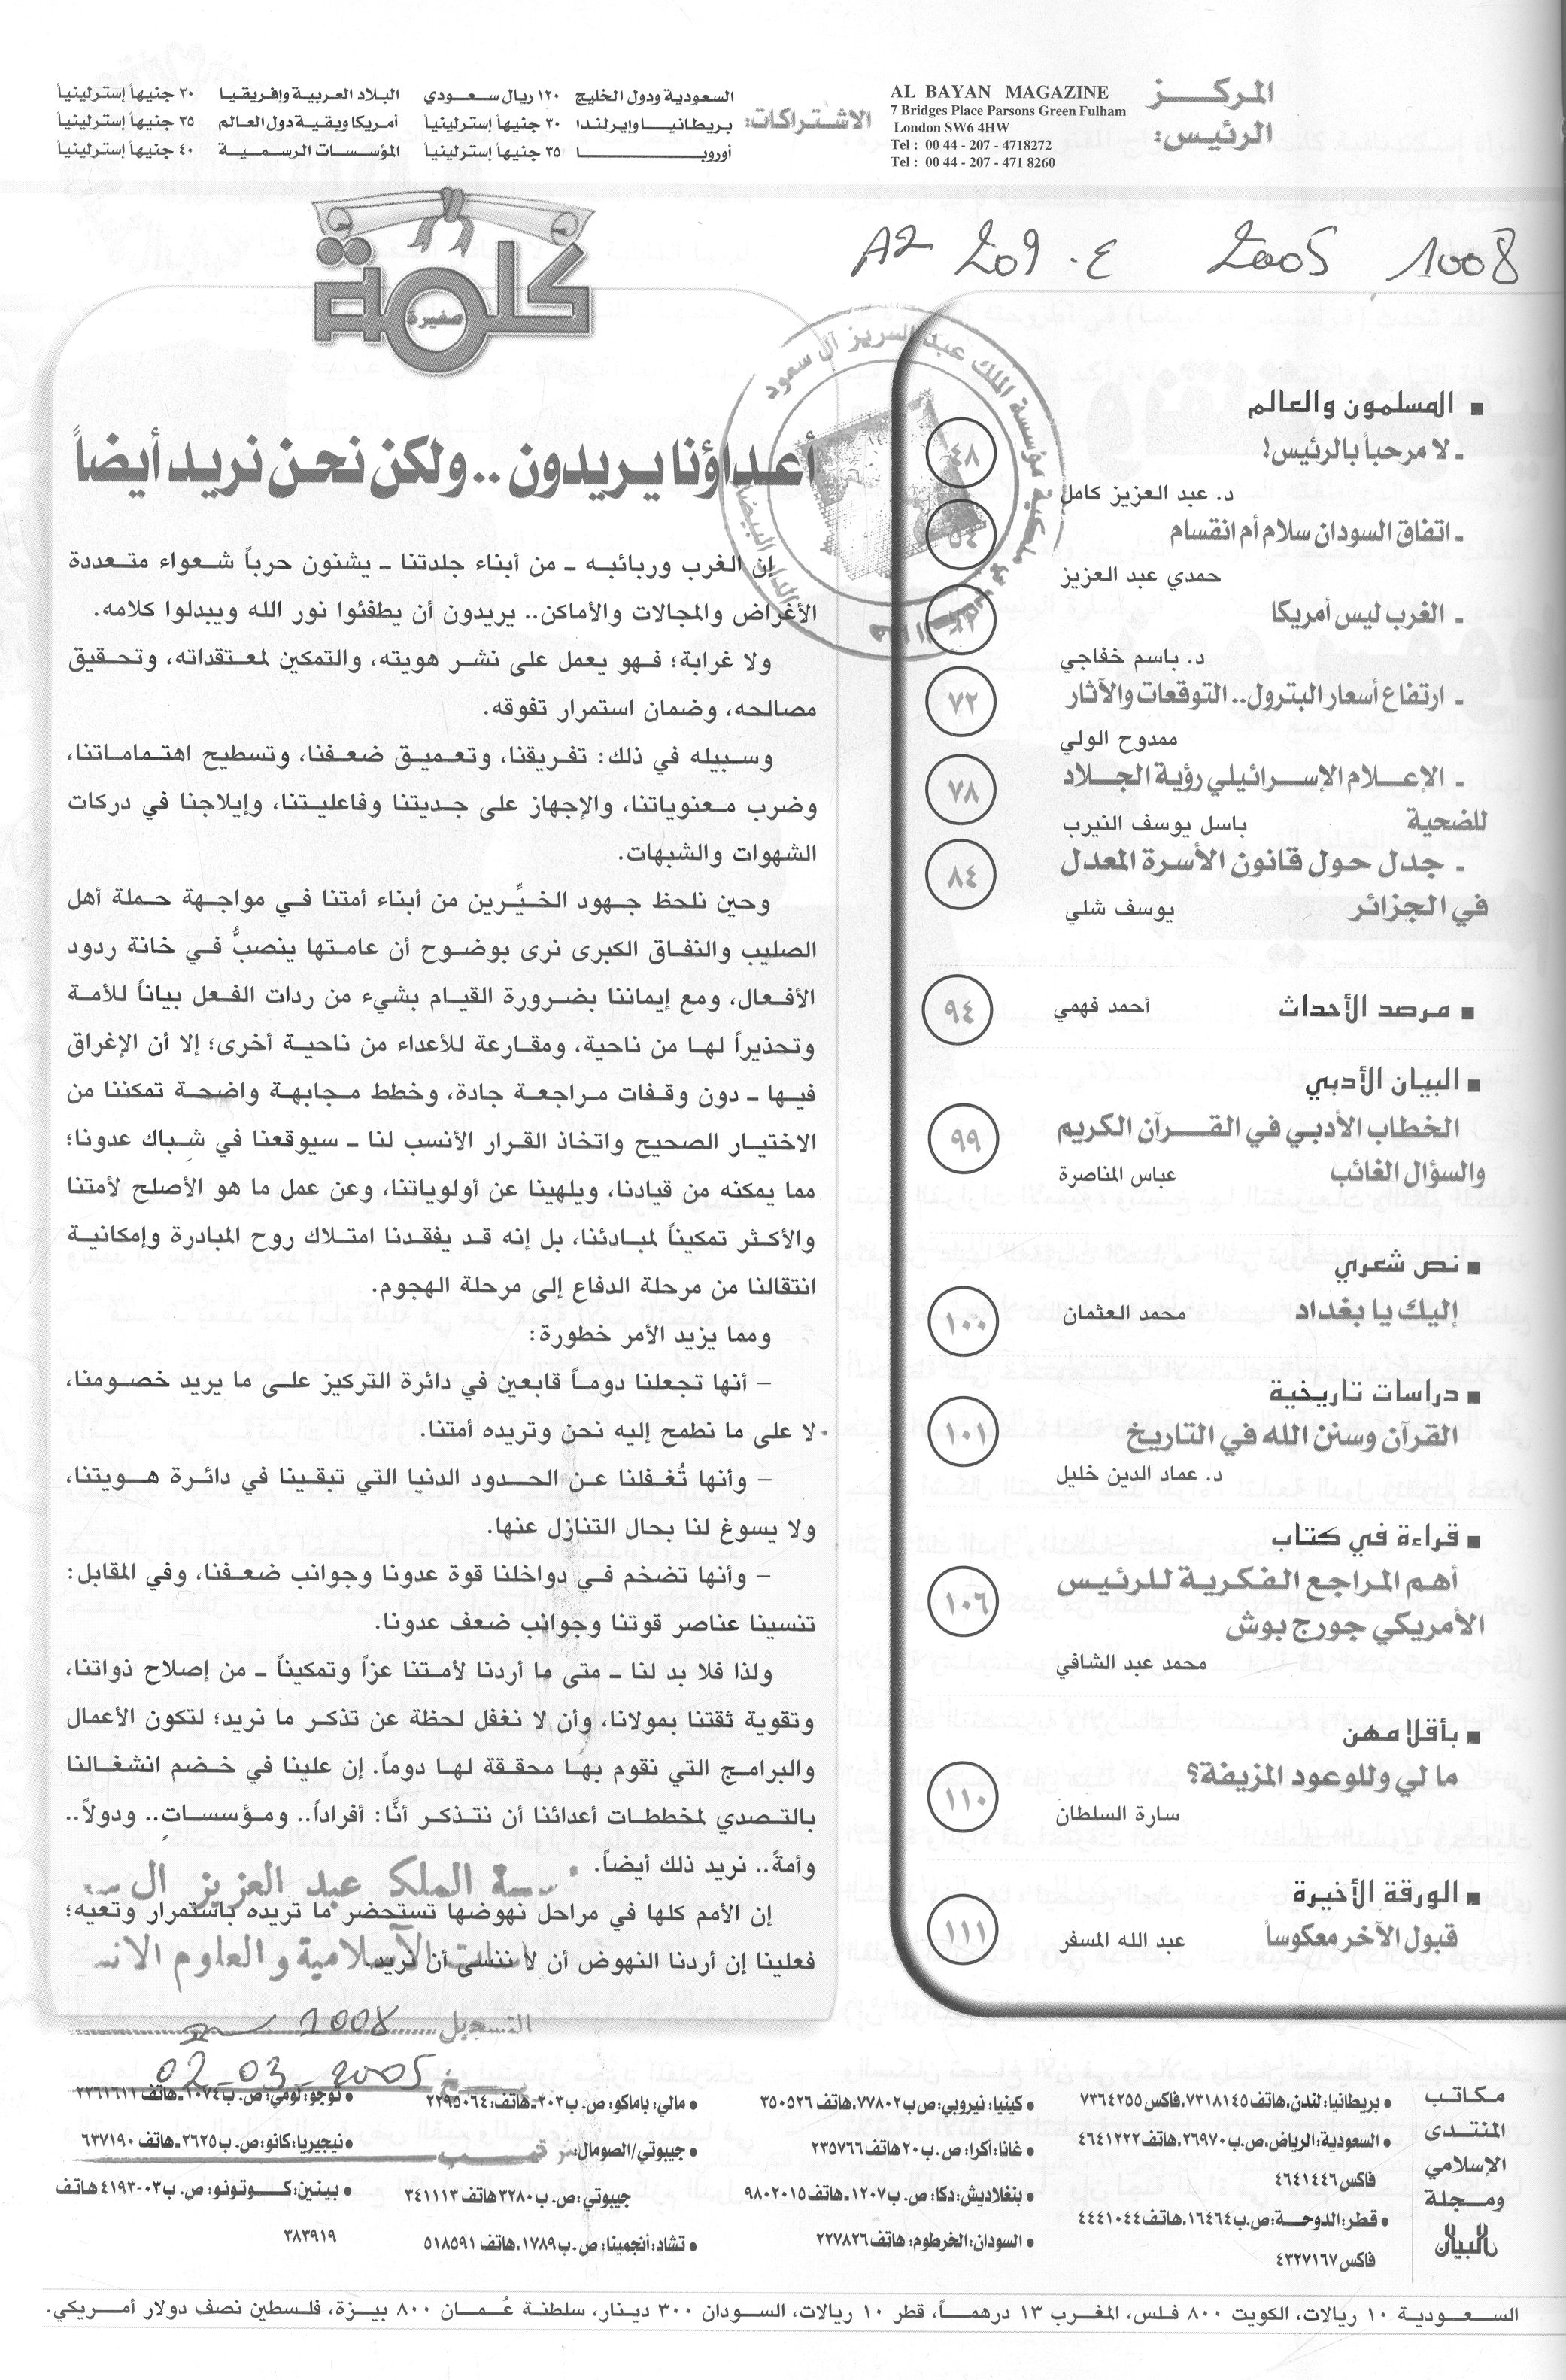 المركز
الرئيس:
AL BAYAN MAGAZINE
7 Bridges Place Parsons Green Fulham
London SW6 4HW
Tel : 00 44 - 207 - 4718272
Tel : 00 44 - 207 - 471 8260
الاشتراكات:
السعودية ودول الخليج ١٢٠ ريال سعودي
بريطانيا وإيرلندا ٣٠ جنيهاً إسترلينياً
أوروبا ٣٥ جنيهاً إسترلينياً
البلاد العربية وإفريقيا ٣٠ جنيهاً إسترلينياً
أمريكا وبقية دول العالم ٣٥ جنيهاً إسترلينياً
المؤسسات الرسمية ٤٠ جنيهاً إسترلينياً
A2 209 . ع 2005 1008
■ المسلمون والعالم
ـ لا مرحباً بالرئيس! ٤٨
د. عبد العزيز كامل
ـ اتفاق السودان سلام أم انقسام ٥٤
حمدي عبد العزيز
ـ الغرب ليس أمريكا
د. باسم خفاجي
ـ ارتفاع أسعار البترول.. التوقعات والآثار ٧٢
ممدوح الولي
ـ الإعلام الإسرائيلي رؤية الجلاد ٧٨
للضحية باسل يوسف النيرب
ـ جدل حول قانون الأسرة المعدل ٨٤
في الجزائر يوسف شلي
■ مرصد الأحداث أحمد فهمي ٩٤
■ البيان الأدبي
الخطاب الأدبي في القرآن الكريم ٩٩
والسؤال الغائب عباس المناصرة
■ نص شعري
إليك يا بغداد محمد العثمان ١٠٠
■ دراسات تاريخية
القرآن وسنن الله في التاريخ ١٠١
د. عماد الدين خليل
■ قراءة في كتاب
أهم المراجع الفكرية للرئيس ١٠٦
الأمريكي جورج بوش
محمد عبد الشافي
■ بأقلامهن
ما لي وللوعود المزيفة؟ ١١٠
سارة السلطان
■ الورقة الأخيرة
قبول الآخر معكوساً عبد الله المسفر ١١١
كلمة
صغيرة
أعداؤنا يريدون .. ولكن نحن نريد أيضاً
إن الغرب وربائبه ـ من أبناء جلدتنا ـ يشنون حرباً شعواء متعددة
الأغراض والمجالات والأماكن.. يريدون أن يطفئوا نور الله ويبدلوا كلامه.
ولا غرابة؛ فهو يعمل على نشر هويته، والتمكين لمعتقداته، وتحقيق
مصالحه، وضمان استمرار تفوقه.
وسبيله في ذلك: تفريقنا، وتعميق ضعفنا، وتسطيح اهتماماتنا،
وضرب معنوياتنا، والإجهاز على جديتنا وفاعليتنا، وإيلاجنا في دركات
الشهوات والشبهات.
وحين نلحظ جهود الخيِّرين من أبناء أمتنا في مواجهة حملة أهل
الصليب والنفاق الكبرى نرى بوضوح أن عامتها ينصبُّ في خانة ردود
الأفعال، ومع إيماننا بضرورة القيام بشيء من ردات الفعل بياناً للأمة
وتحذيراً لها من ناحية، ومقارعة للأعداء من ناحية أخرى؛ إلا أن الإغراق
فيها ـ دون وقفات مراجعة جادة، وخطط مجابهة واضحة تمكننا من
الاختيار الصحيح واتخاذ القرار الأنسب لنا ـ سيوقعنا في شباك عدونا؛
مما يمكنه من قيادنا، ويلهينا عن أولوياتنا، وعن عمل ما هو الأصلح لأمتنا
والأكثر تمكيناً لمبادئنا، بل إنه قد يفقدنا امتلاك روح المبادرة وإمكانية
انتقالنا من مرحلة الدفاع إلى مرحلة الهجوم.
ومما يزيد الأمر خطورة:
– أنها تجعلنا دوماً قابعين في دائرة التركيز على ما يريد خصومنا،
لا على ما نطمح إليه نحن وتريده أمتنا.
– وأنها تُغفلنا عن الحدود الدنيا التي تبقينا في دائرة هويتنا،
ولا يسوغ لنا بحال التنازل عنها.
– وأنها تضخم في دواخلنا قوة عدونا وجوانب ضعفنا، وفي المقابل:
تنسينا عناصر قوتنا وجوانب ضعف عدونا.
ولذا فلا بد لنا ـ متى ما أردنا لأمتنا عزاً وتمكيناً ـ من إصلاح ذواتنا،
وتقوية ثقتنا بمولانا، وأن لا نغفل لحظة عن تذكر ما نريد؛ لتكون الأعمال
والبرامج التي نقوم بها محققة لها دوماً. إن علينا في خضم انشغالنا
بالتصدي لمخططات أعدائنا أن نتذكر أنَّا: أفراداً.. ومؤسساتٍ.. ودولاً..
وأمةً.. نريد ذلك أيضاً.
إن الأمم كلها في مراحل نهوضها تستحضر ما تريده باستمرار وتعيه؛
فعلينا إن أردنا النهوض أن لا ننسى أن نريد
الملك عبد العزيز آل
الإسلامية والعلوم الانـ
التسجيل 1008
02-03-2005
مكاتب
المنتدى
الإسلامي
ومجلة
البيان
● بريطانيا: لندن، هاتف ٧٣١٨١٤٥، فاكس ٧٣٦٤٢٥٥
● السعودية: الرياض، ص.ب ٢٦٩٧٠، هاتف ٤٦٤١٢٢٢
فاكس ٤٦٤١٤٤٦
● قطر: الدوحة: ص.ب ١٦٤٦٤، هاتف ٤٤٤١٠٤٤
فاكس ٤٣٢٧١٦٧
● كينيا: نيروبي: ص ب ٧٧٨٠٢، هاتف ٣٥٠٥٢٦
● غانا: أكرا: ص. ب ٢٠ هاتف ٢٣٥٧٦٦
● بنغلاديش: دكا: ص. ب ١٢٠٧ـ هاتف ٩٨٠٢٠١٥
● السودان: الخرطوم: هاتف ٢٢٧٨٢٦
● مالي: باماكو: ص. ب ٢٠٣ـ هاتف: ٢٢٩٥٠٦٤
● جيبوتي/الصومال:
جيبوتي: ص. ب ٣٢٨٠ هاتف ٣٤١١١٣
● تشاد: أنجمينا: ص. ب ١٧٨٩، هاتف ٥١٨٥٩١
● توجو: لومي: ص. ب ١٠٧٤ـ هاتف ٢٢٦١٦١١
● نيجيريا: كانو: ص. ب ٢٦٢٥ـ هاتف ٦٣٧١٩٠
● بينين: كوتونو: ص. ب ٠٣-٤١٩٣ هاتف
٣٨٣٩١٩
السعودية ١٠ ريالات، الكويت ٨٠٠ فلس، المغرب ١٣ درهماً، قطر ١٠ ريالات، السودان ٣٠٠ دينار، سلطنة عُمان ٨٠٠ بيزة، فلسطين نصف دولار أمريكي.